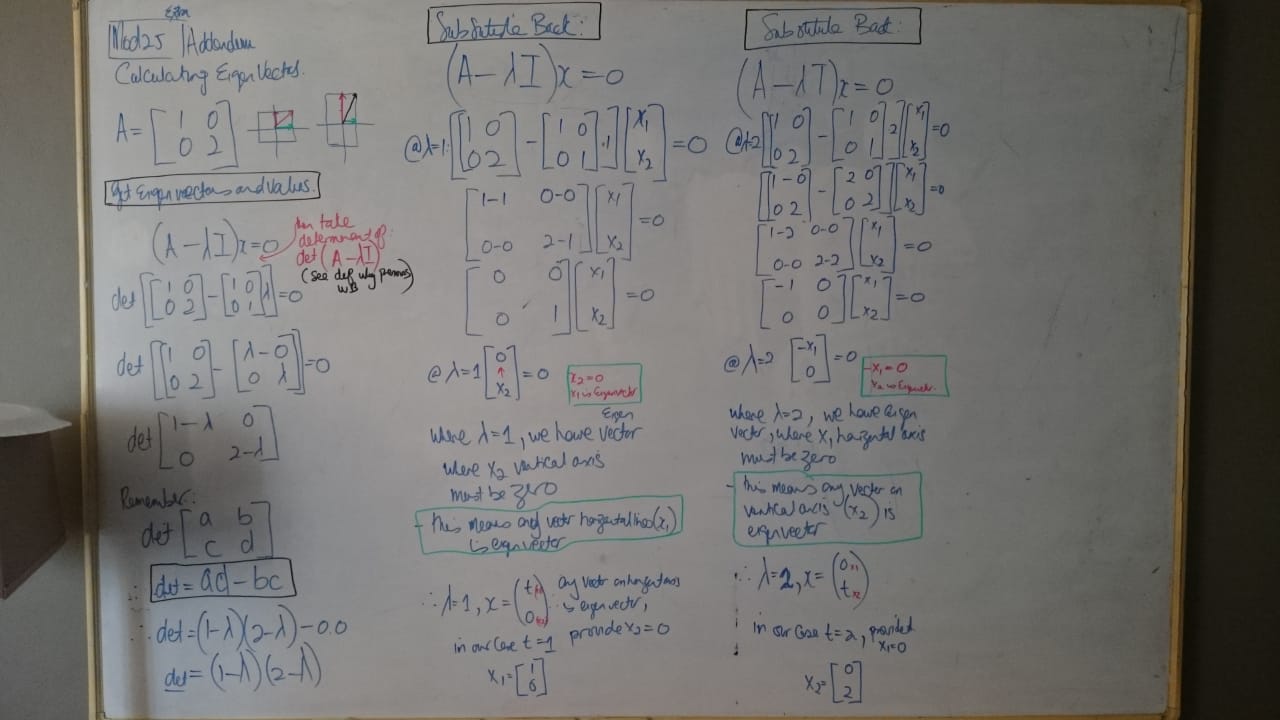 Exam
Mod25 | Addendum
Calculating Eigen Vectors.
A = [1 0; 0 2]
get Eigenvectors and values.
(A - λI)x = 0
then take
determinant of:
det(A - λI)
(see def why pennos
WB)
det[[1 0; 0 2] - [1 0; 0 1]λ] = 0
det[[1 0; 0 2] - [λ - 0; 0 λ]] = 0
det[1 - λ 0; 0 2-λ]
Remember:
det[a b; c d]
∴ det = ad - bc
∴ det = (1-λ)(2-λ) - 0.0
det = (1-λ)(2-λ)
Substitute Back:
(A - λI)x = 0
@λ=1: [[1 0; 0 2] - [1 0; 0 1].1][x1; x2] = 0
[1-1 0-0; 0-0 2-1][x1; x2] = 0
[0 0; 0 1][x1; x2] = 0
@ λ=1 [0; x2] = 0
x2 = 0
x1 is Eigenvector
Eigen
where λ=1, we have vector
where x2 vertical axis
must be zero
- this means any vector horizontal lines (x1)
is eigenvector
∴ λ=1, x = (t x1; 0 x2) : any vector on horizontal axis
is eigenvector,
in our case t=1 provide x2=0
x1 = [1; 0]
Substitute Back:
(A - λI)x = 0
@λ=2 [[1 0; 0 2] - [1 0; 0 1]2][x1; x2] = 0
[[1 - 0; 0 2] - [2 0; 0 2]][x1; x2] = 0
[1-2 0-0; 0-0 2-2][x1; x2] = 0
[-1 0; 0 0][x1; x2] = 0
@ λ=2 [-x1; 0] = 0
-x1 = 0
x2 is Eigenvector.
where λ=2, we have eigen
vector, where x1 horizontal axis
must be zero
- this means any vector on
vertical axis (x2) is
eigenvector
∴ λ=2, x = (0 x1; t x2)
in our case t=2, provided
x1=0
x2 = [0; 2]